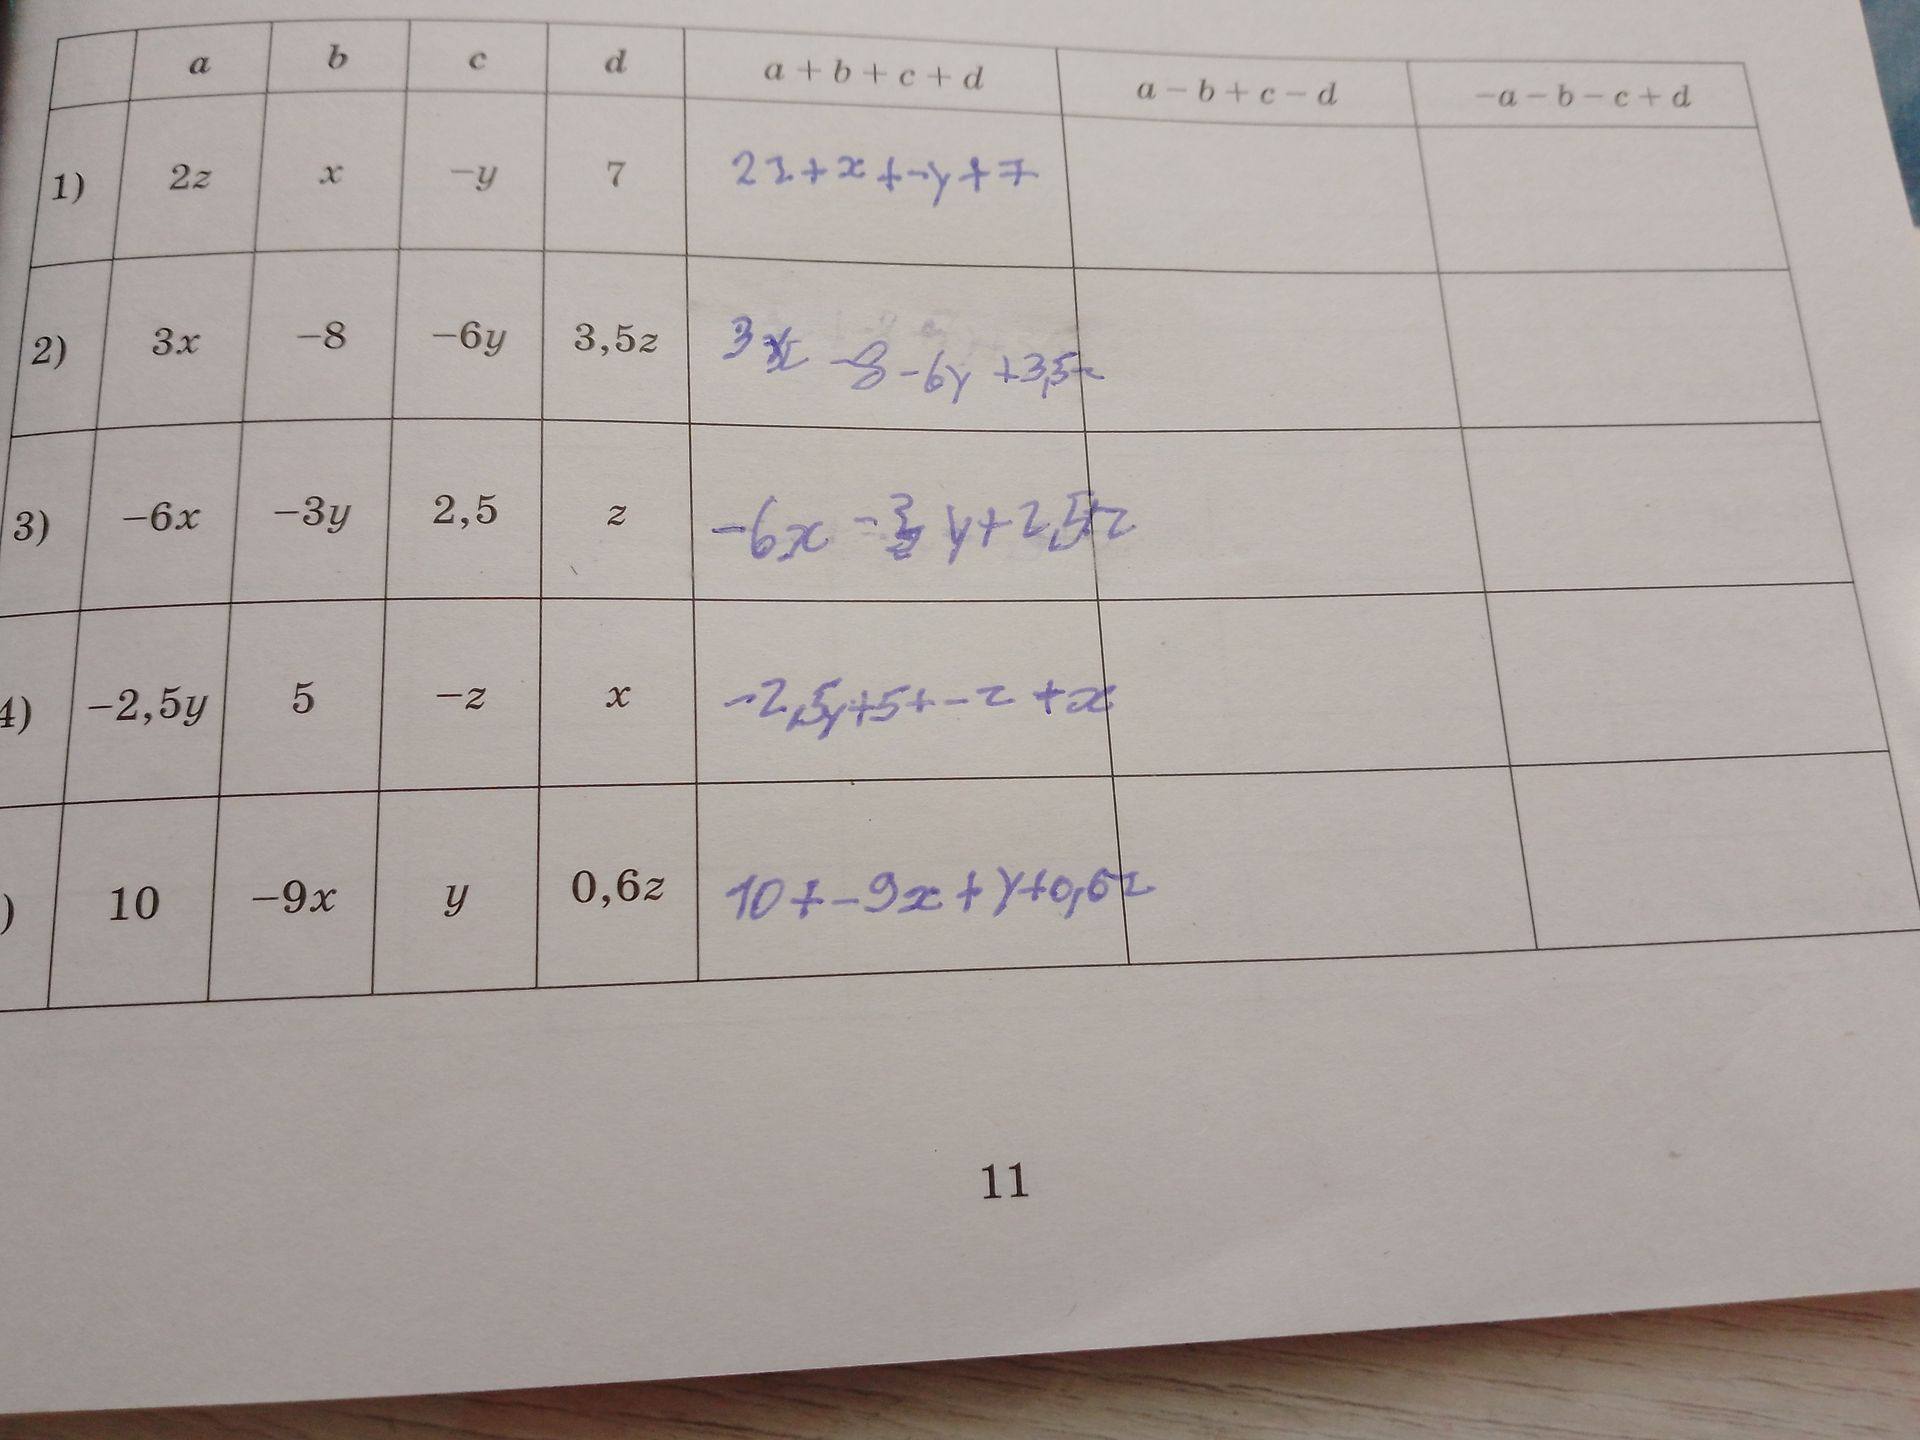 a b c d a + b + c + d a − b + c − d −a − b − c + d
1) 2z x −y 7 2z+x+-y+7
2) 3x −8 −6y 3,5z 3x -8-6y +3,5z
3) −6x −3y 2,5 z -6x -3y+2,5+z
4) −2,5y 5 −z x -2,5y+5+-z+x
) 10 −9x y 0,6z 10+-9x+y+0,6z
11